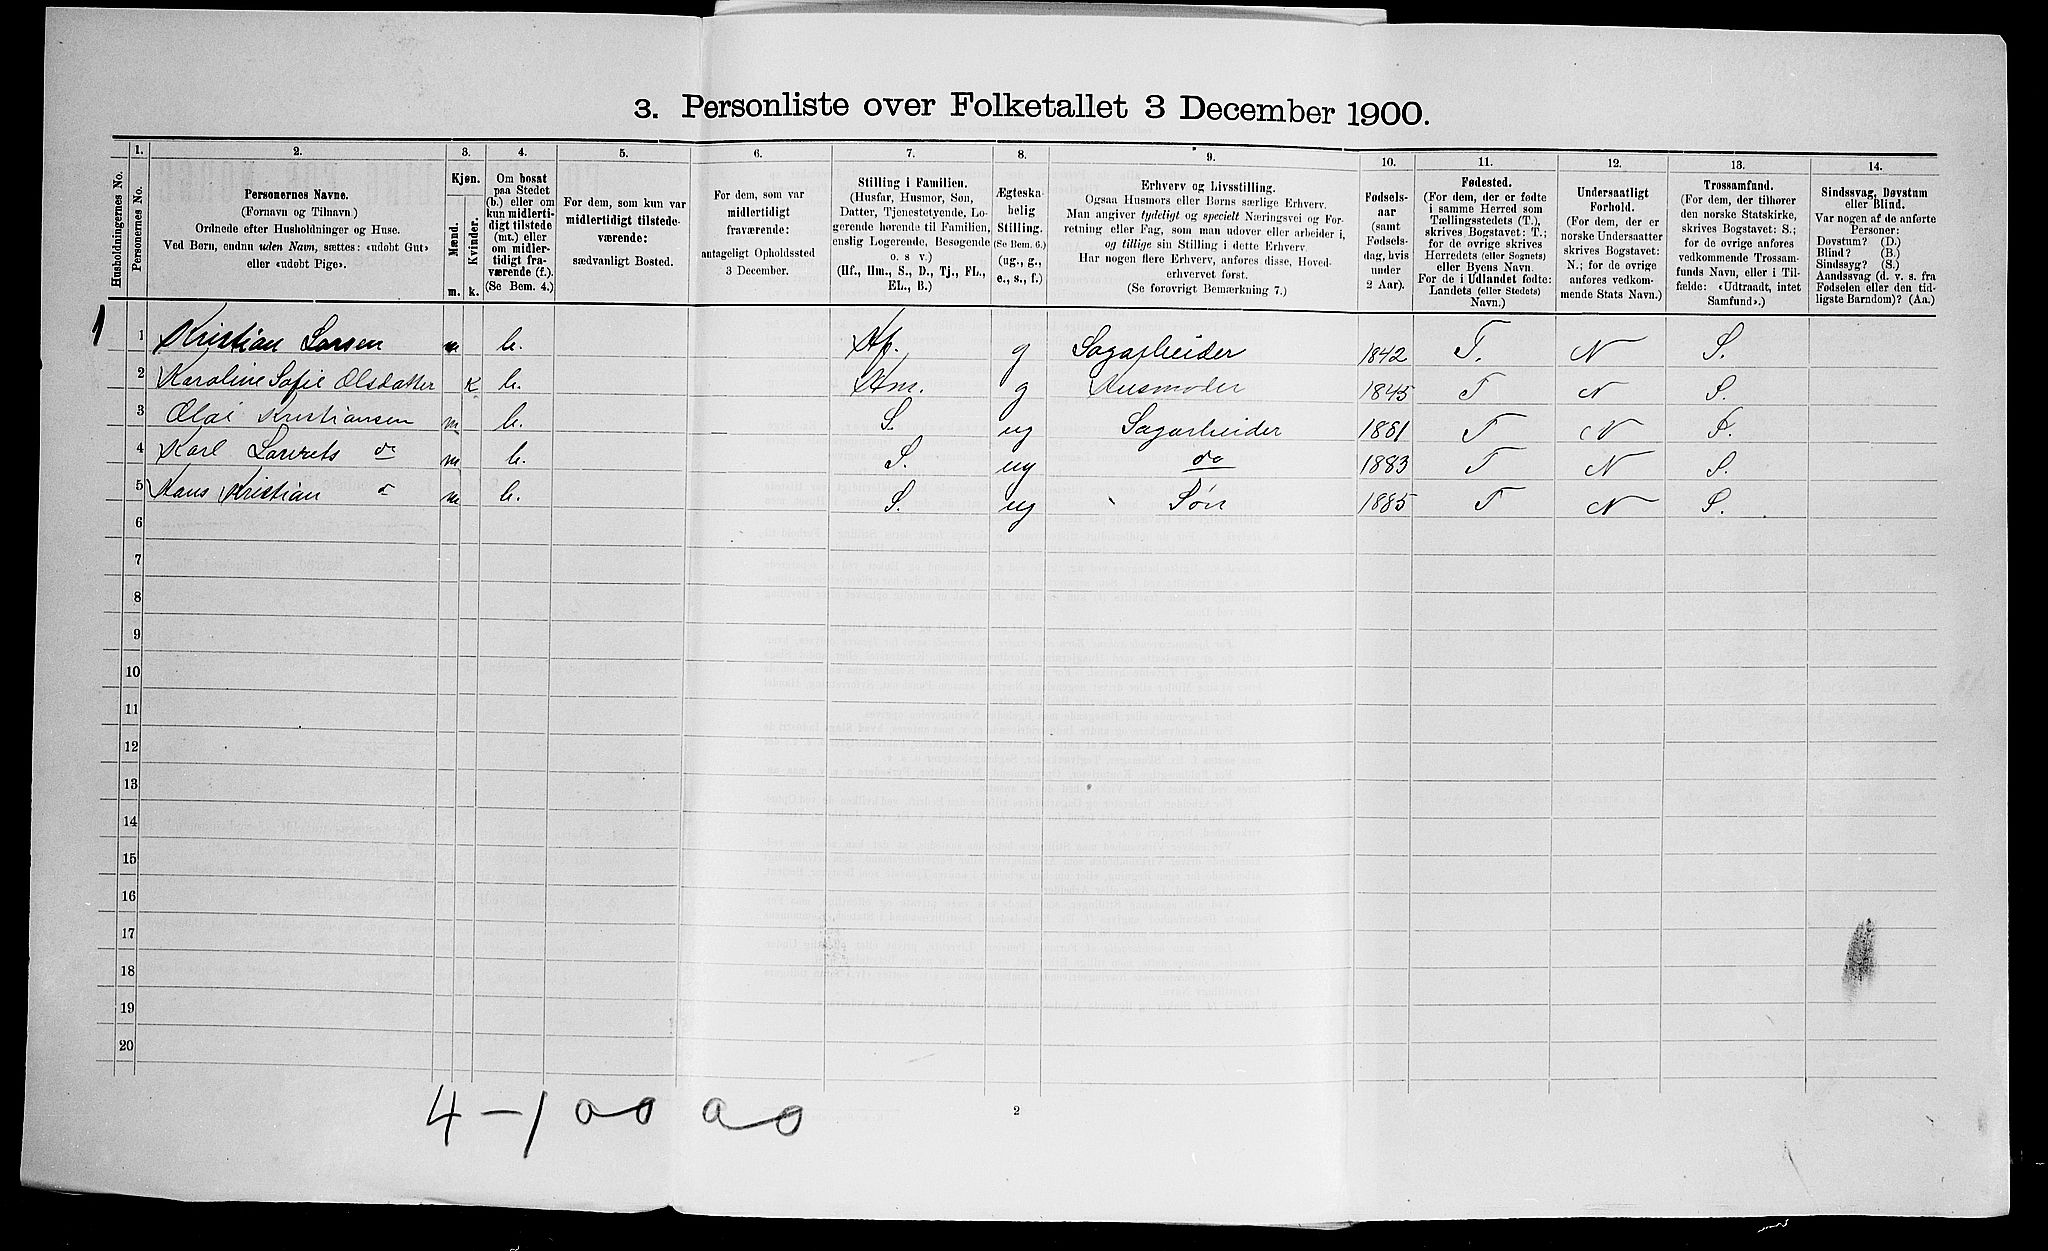 3. Personliste over Folketallet 3 December 1900.
Husholdningernes No.
1. Personernes No.
2. Personernes Navne.
(Fornavn og Tilnavn.)
Ordnede efter Husholdninger og Huse.
Ved Børn, endnu uden Navn, sættes: «udøbt Gut»
eller «udøbt Pige».
3. Kjøn.
Mænd. m.
Kvinder. k.
4. Om bosat
paa Stedet
(b.) eller om
kun midlerti-
digt tilstede
(mt.) eller
om midler-
tidigt fra-
værende (f.).
(Se Bem. 4.)
5. For dem, som kun var
midlertidigt tilstede-
værende:
sædvanligt Bosted.
6. For dem, som var
midlertidigt
fraværende:
antageligt Opholdssted
3 December.
7. Stilling i Familien.
(Husfar, Husmor, Søn,
Datter, Tjenestetyende, Lo-
gerende hørende til Familien,
enslig Logerende, Besøgende
o. s. v.)
(Hf., Hm., S., D., Tj., FL.,
EL., B.)
8. Ægteska-
belig
Stilling.
(Se Bem. 6.)
(ug., g.,
e., s., f.)
9. Erhverv og Livsstilling.
Ogsaa Husmors eller Børns særlige Erhverv.
Man angiver tydeligt og specielt Næringsvei og For-
retning eller Fag, som man udover eller arbeider i,
og tillige sin Stilling i dette Erhverv.
Har nogen flere Erhverv, anføres disse, Hoved-
erhvervet først.
(Se forøvrigt Bemærkning 7.)
10. Fødsels-
aar
(samt
Fødsels-
dag, hvis
under
2 Aar).
11. Fødested.
(For dem, der er fødte
i samme Herred som
Tællingsstedets (T.),
skrives Bogstavet: T.;
for de øvrige skrives
Herredets (eller Sognets)
eller Byens Navn.
For de i Udlandet fødte:
Landets (eller Stedets)
Navn.)
12. Undersaatligt
Forhold.
(For dem, der er
norske Undersaatter
skrives Bogstavet:
N.; for de øvrige
anføres vedkom-
mende Stats Navn.)
13. Trossamfund.
(For dem, der tilhører
den norske Statskirke,
skrives Bogstavet: S.;
for de øvrige anføres
vedkommende Trossam-
funds Navn, eller i Til-
fælde: «Udtraadt, intet
Samfund».)
14. Sindssvag, Døvstum
eller Blind.
Var nogen af de anførte
Personer:
Døvstum? (D.)
Blind? (B.)
Sindssyg? (S.)
Aandssvag (d. v. s. fra
Fødselen eller den tid-
ligste Barndom)? (Aa.)
1 1 Kristian Larsen m b. Hf. g Sagarbeider 1842 T. N S.
2 Karoline Sofie Olsdatter K b. Hm. g Husmoder 1845 T N S.
3 Olai Kristiansen m b. S. ug Sagarbeider 1881 T N S.
4 Karl Laurits do m b. S. ug do 1883 T N S.
5 Hans Kristian d m b. S. ug Søn 1885 T N S.
6
7
8
9
10
11
12
13
14
15
16
17
18
19
20
4-1 00 00
2